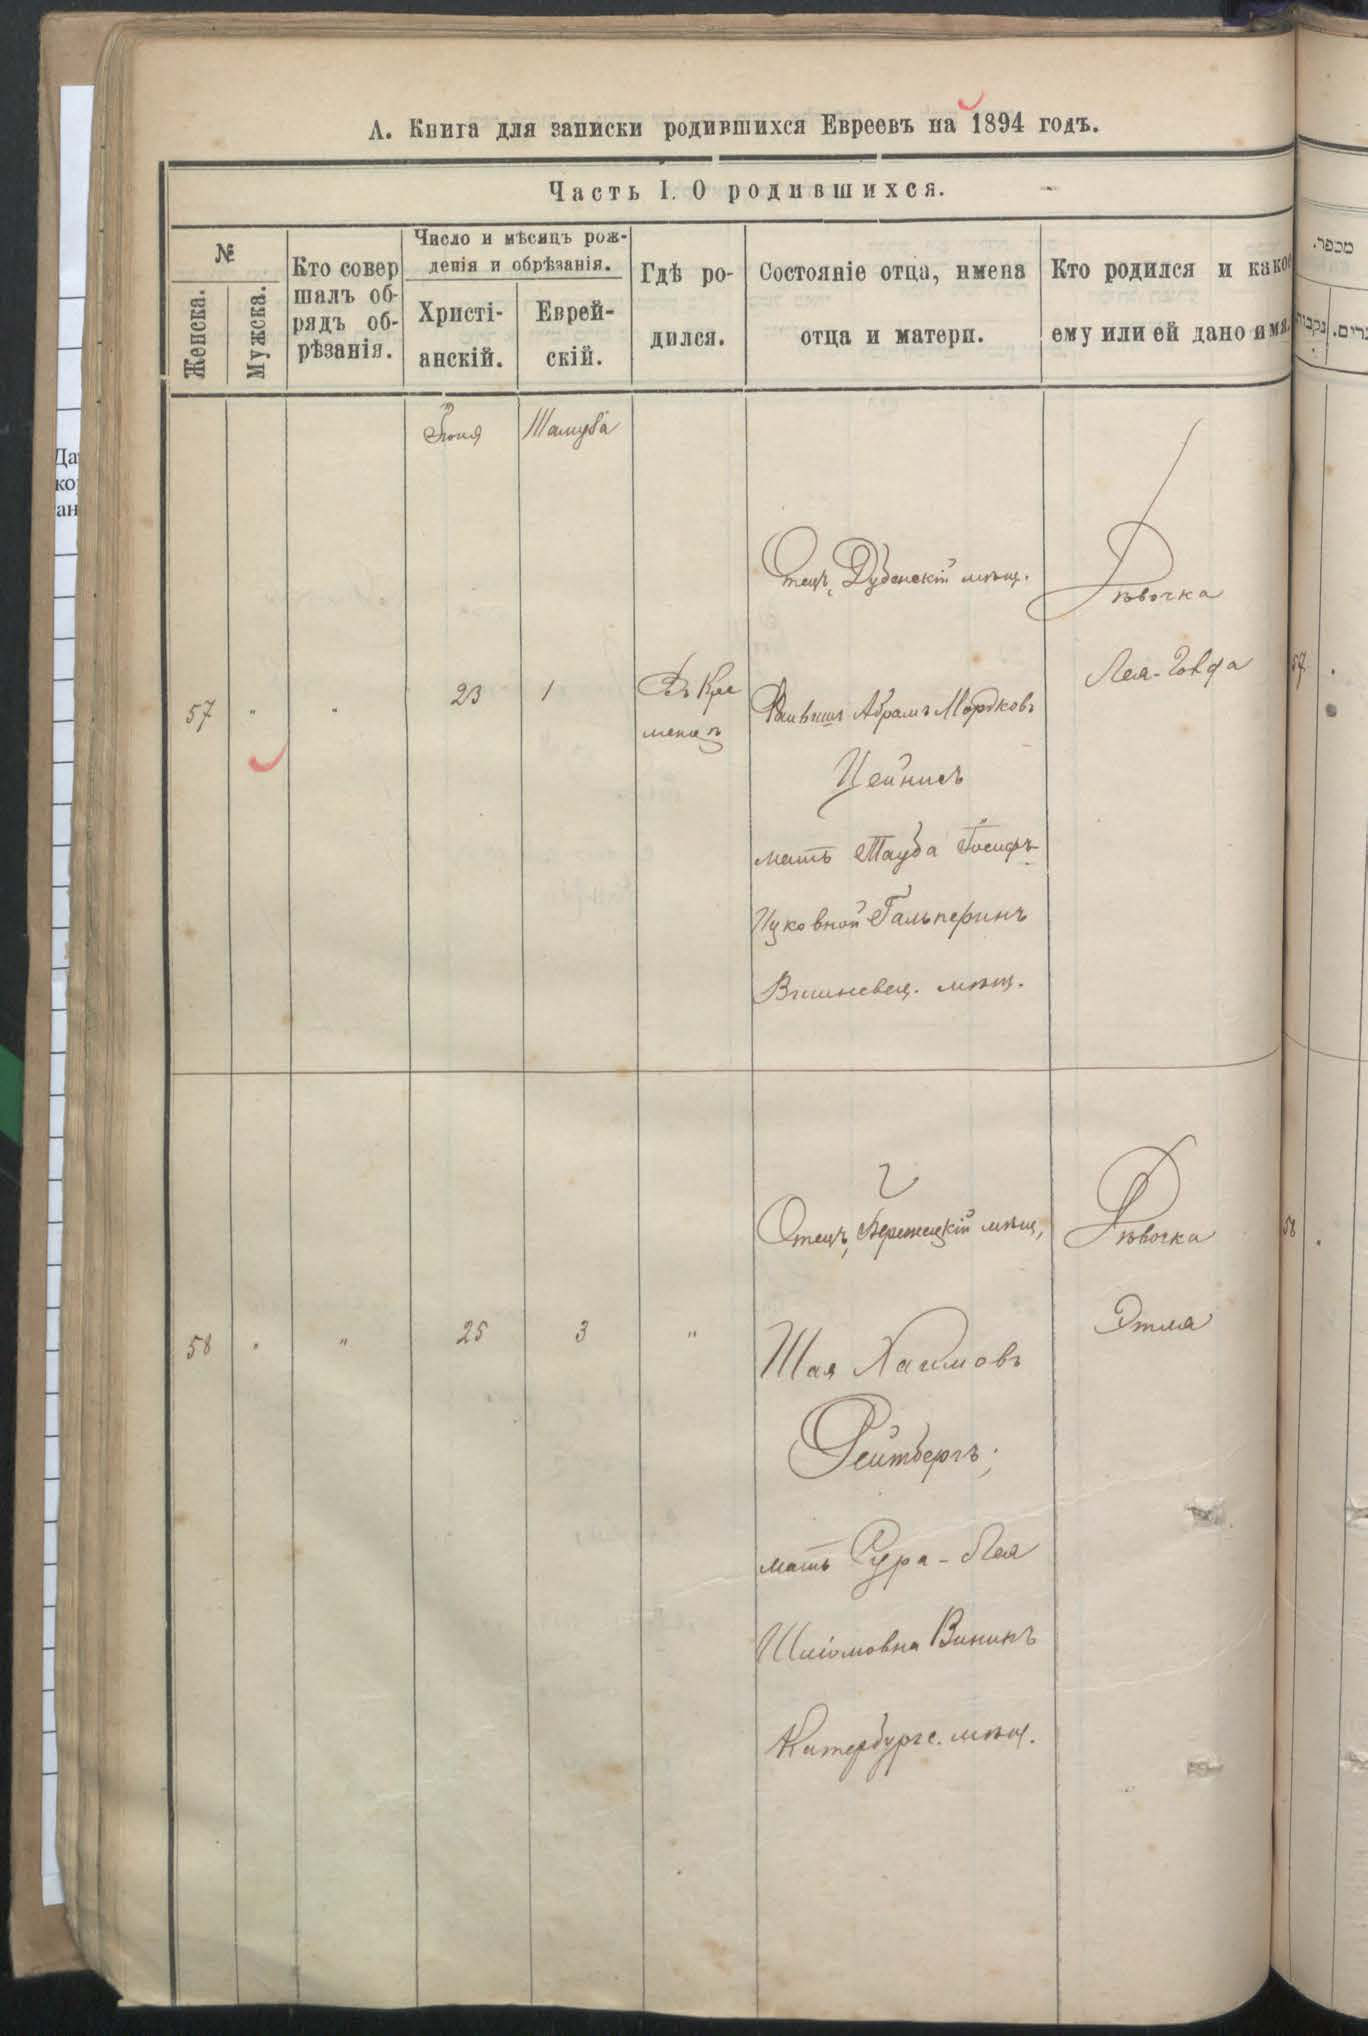 А. Книга для записки родившихся Евреевъ на 1894 годъ.
Часть I. О родившихся.
№
Женска.
Мужска.
Кто совер
шалъ об-
рядъ об-
рѣзанія.
Число и мѣсяцъ рож-
денія и обрѣзанія.
Христі-
анскій.
Еврей-
скій.
Гдѣ ро-
дился.
Состояніе отца, имена
отца и матери.
Кто родился и какое
ему или ей дано имя.
מספר.
נקבות
Іюня
57
"
"
23
1
Въ Кре
менцѣ
Отецъ, Дубенскій мѣщ.
Файвишъ Абрамъ Мордковъ
Цейнисъ
мать Тауба Іосифъ-
Цуковной Гальперинъ
Вишневец. мѣщ.
Дѣвочка
Лея-
57
58
"
"
25
3
"
Отецъ, Бережецкій мѣщ,
Шая Хаимовъ
Рейтбергъ;
мать Сура-Лея
Шліомовна Виникъ
Катербургс. мѣщ.
Дѣвочка
Этля
58
Да
ко
ан